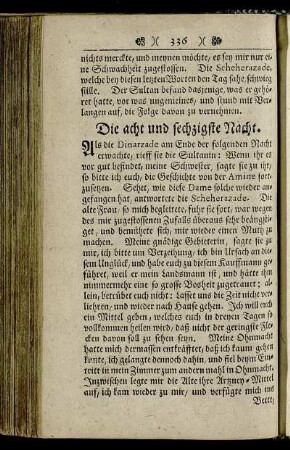 336
nichts merckte, und meynen möchte, es sey mir nur ei-
ne Schwachheit zugestossen. Die Scheherazade,
welche bey diesen letzten Worten den Tag sahe, schwieg
stille. Der Sultan befand dasjenige, was er gehö-
ret hatte, vor was ungemeines, und stund mit Ver-
langen auf, die Folge davon zu vernehmen.
Die acht und sechzigste Nacht.
Als die Dinarzade am Ende der folgenden Nacht
erwachte, rieff sie der Sultanin: Wenn ihr es
vor gut befindet, meine Schwester, sagte sie zu ihr,
so bitte ich euch, die Geschichte von der Amine fort-
zusetzen. Sehet, wie diese Dame solche wieder an-
gefangen hat, antwortete die Scheherazade. Die
alte Frau, so mich begleitete, fuhr sie fort, war wegen
des mir zugestossenen Zufalls überaus sehr beängsti-
get, und bemühete sich, mir wieder einen Muth zu
machen. Meine gnädige Gebieterin, sagte sie zu
mir, ich bitte um Verzeihung; ich bin Ursach an die-
sem Unglück, und habe euch zu diesem Kauffmann ge-
führet, weil er mein Landsmann ist, und hätte ihm
nimmermehr eine so grosse Bosheit zugetrauet; al-
lein, betrübet euch nicht: Lasset uns die Zeit nicht ver-
liehren, und wieder nach Hause gehen. Ich will euch
ein Mittel geben, welches euch in dreyen Tagen so
vollkommen heilen wird, daß nicht der geringste Fle-
cken davon soll zu sehen seyn. Meine Ohnmacht
hatte mich dermassen entkräfftet, daß ich kaum gehen
kunte, ich gelangte dennoch dahin, und fiel beym Ein-
tritt in mein Zimmer zum andern mahl in Ohnmacht.
Inzwischen legte mir die Alte ihre Artzney-Mittel
auf, ich kam wieder zu mir, und verfügte mich ins
Bette,